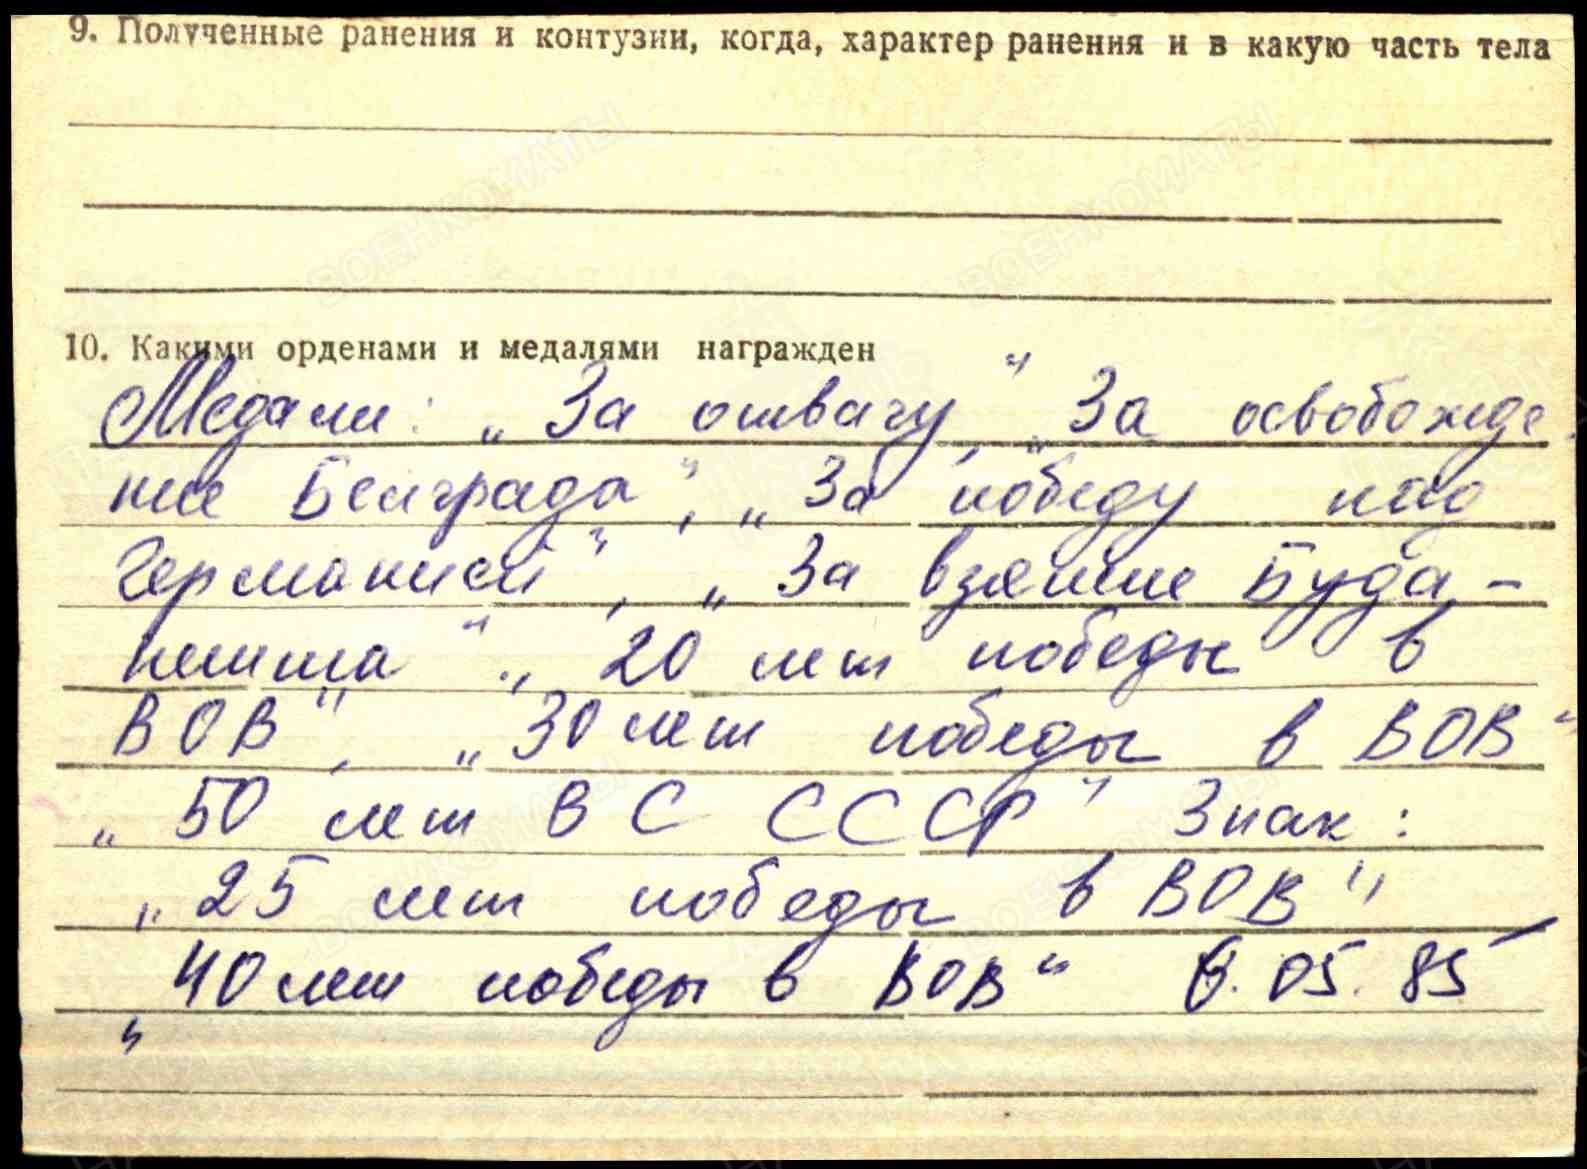 9. Полученные ранения и контузии, когда, характер ранения и в какую часть тела
10. Какими орденами и медалями награжден
Медали: „За отвагу", „За освобожде-
ние Белграда", „За победу над
Германией", „За взятие Буда-
пешта" „20 лет победы в
ВОВ", „30 лет победы в ВОВ"
„50 лет ВС СССР" Знак:
„25 лет победы в ВОВ"
„40 лет победы в ВОВ" 6.05.85
ВОЕНКОМАТЫ